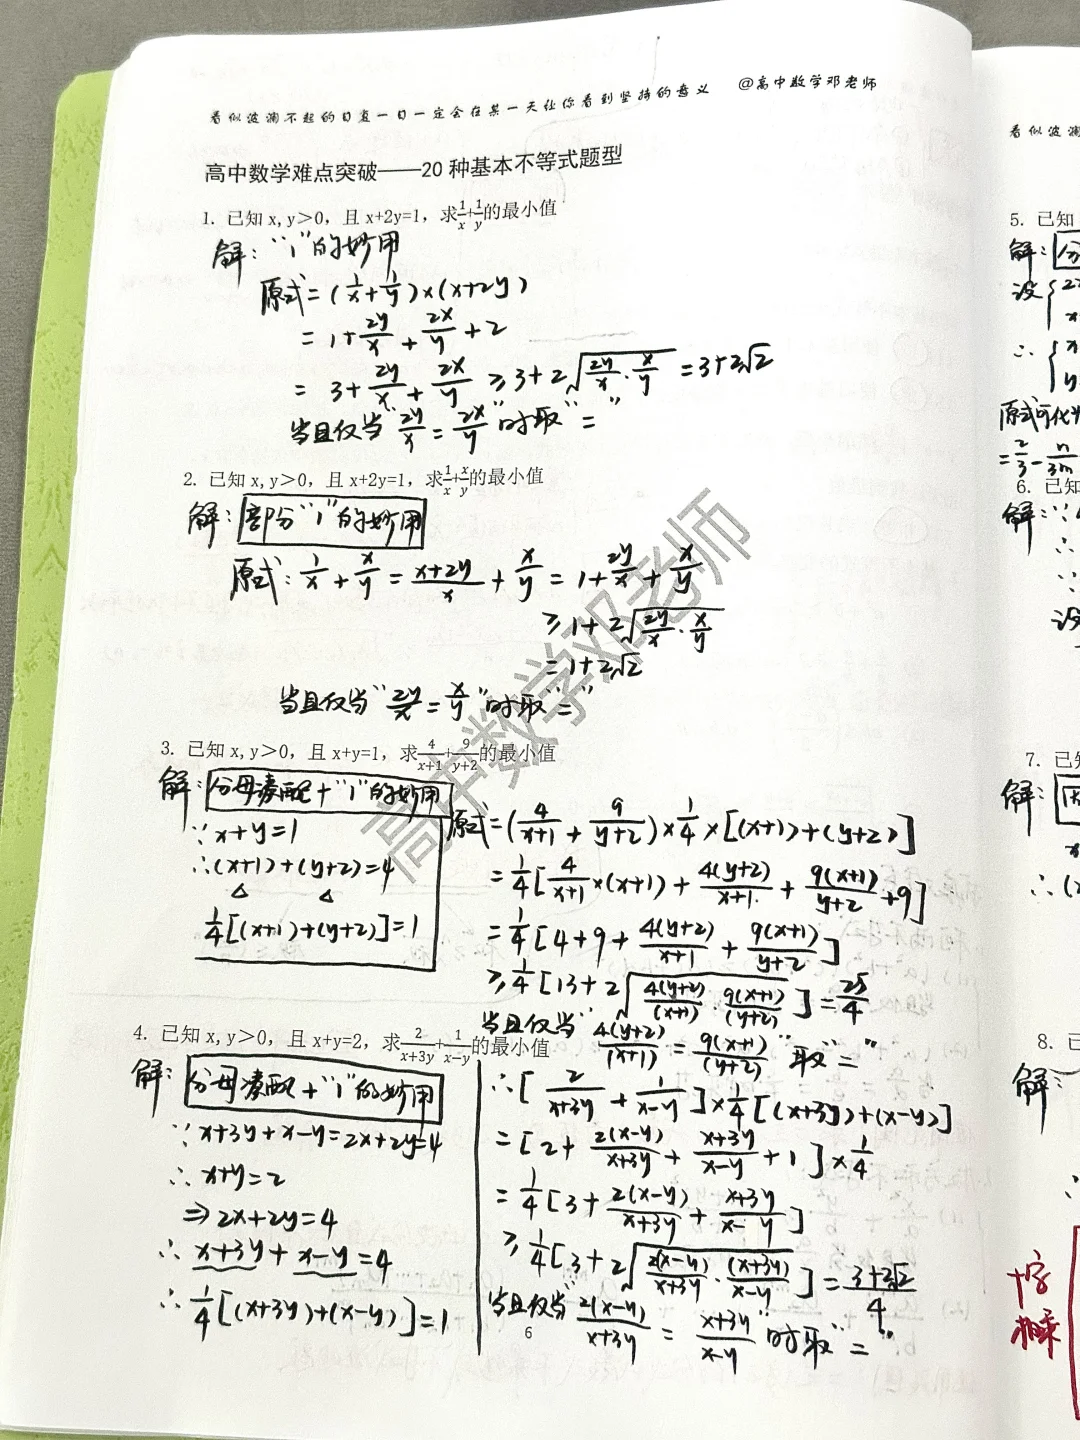 看似波澜不起的日复一日一定会在某一天让你看到坚持的意义 @高中数学邓老师
高中数学难点突破——20 种基本不等式题型
1. 已知 x,y＞0，且 x+2y=1，求1/x+1/y的最小值
解："1"的妙用
原式=(1/x+1/y)×(x+2y)
=1+2y/x+2x/y+2
=3+2y/x+2x/y≥3+2√(2y/x·x/y)=3+2√2
当且仅当"2y/x=2x/y"时取"="
2. 已知 x,y＞0，且 x+2y=1，求1/x+x/y的最小值
解：部分"1"的妙用
原式：1/x+x/y=(x+2y)/x+x/y=1+2y/x+x/y
≥1+2√(2y/x·x/y)
=1+2√2
当且仅当"2y/x=x/y"时取"="
3. 已知 x,y＞0，且 x+y=1，求4/(x+1)+9/(y+2)的最小值
解：分母凑配+"1"的妙用
∵x+y=1
∴(x+1)+(y+2)=4
1/4[(x+1)+(y+2)]=1
原式=(4/(x+1)+9/(y+2))×1/4×[(x+1)+(y+2)]
=1/4[4/(x+1)×(x+1)+4(y+2)/(x+1)+9(x+1)/(y+2)+9]
=1/4[4+9+4(y+2)/(x+1)+9(x+1)/(y+2)]
≥1/4[13+2√(4(y+2)/(x+1)·9(x+1)/(y+2))]=25/4
当且仅当"4(y+2)/(x+1)=9(x+1)/(y+2)"取"="
4. 已知 x,y＞0，且 x+y=2，求2/(x+3y)+1/(x−y)的最小值
解：分母凑配+"1"的妙用
∵x+3y+x-y=2x+2y=4
∴x+y=2
⇒2x+2y=4
∴x+3y+x-y=4
∴1/4[(x+3y)+(x-y)]=1
∴[2/(x+3y)+1/(x-y)]×1/4[(x+3y)+(x-y)]
=[2+2(x-y)/(x+3y)+(x+3y)/(x-y)+1]×1/4
=1/4[3+2(x-y)/(x+3y)+(x+3y)/(x-y)]
≥1/4[3+2√(2(x-y)/(x+3y)·(x+3y)/(x-y))]=(3+2√2)/4
当且仅当"2(x-y)/(x+3y)=(x+3y)/(x-y)"时取"="
6
高中数学邓老师
看似波澜
5. 已知
解：
设
∴
原式可化为
=2/3-n/3m
6. 已知
解：∵
∴
∵
设
7. 已知
解：
∴(
8. 已
解：
∴
十字
相乘